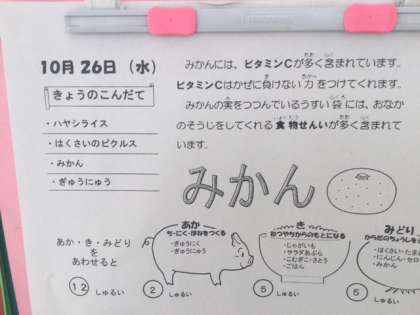 10月26日（水）
きょうのこんだて
・ハヤシライス
・はくさいのピクルス
・みかん
・ぎゅうにゅう
みかんには、ビタミンCが多く含まれています。
ビタミンCはかぜに負けない力をつけてくれます。
みかんの実をつつんでいるうすい袋には、おなか
のそうじをしてくれる食物せんいが多く含まれて
います。
みかん
あか・き・みどり
を
あわせると
12 しゅるい
あか
ち・にく・ほねをつくる
・ぎゅうにく
・ぎゅうにゅう
2 しゅるい
き
ねつやちからのもとになる
・じゃがいも
・サラダあぶら
・こむぎこ・さとう
・ごはん
5 しゅるい
みどり
からだのちょうしを
・はくさい・たま
・にんじん・セロ
・みかん
5 しゅるい